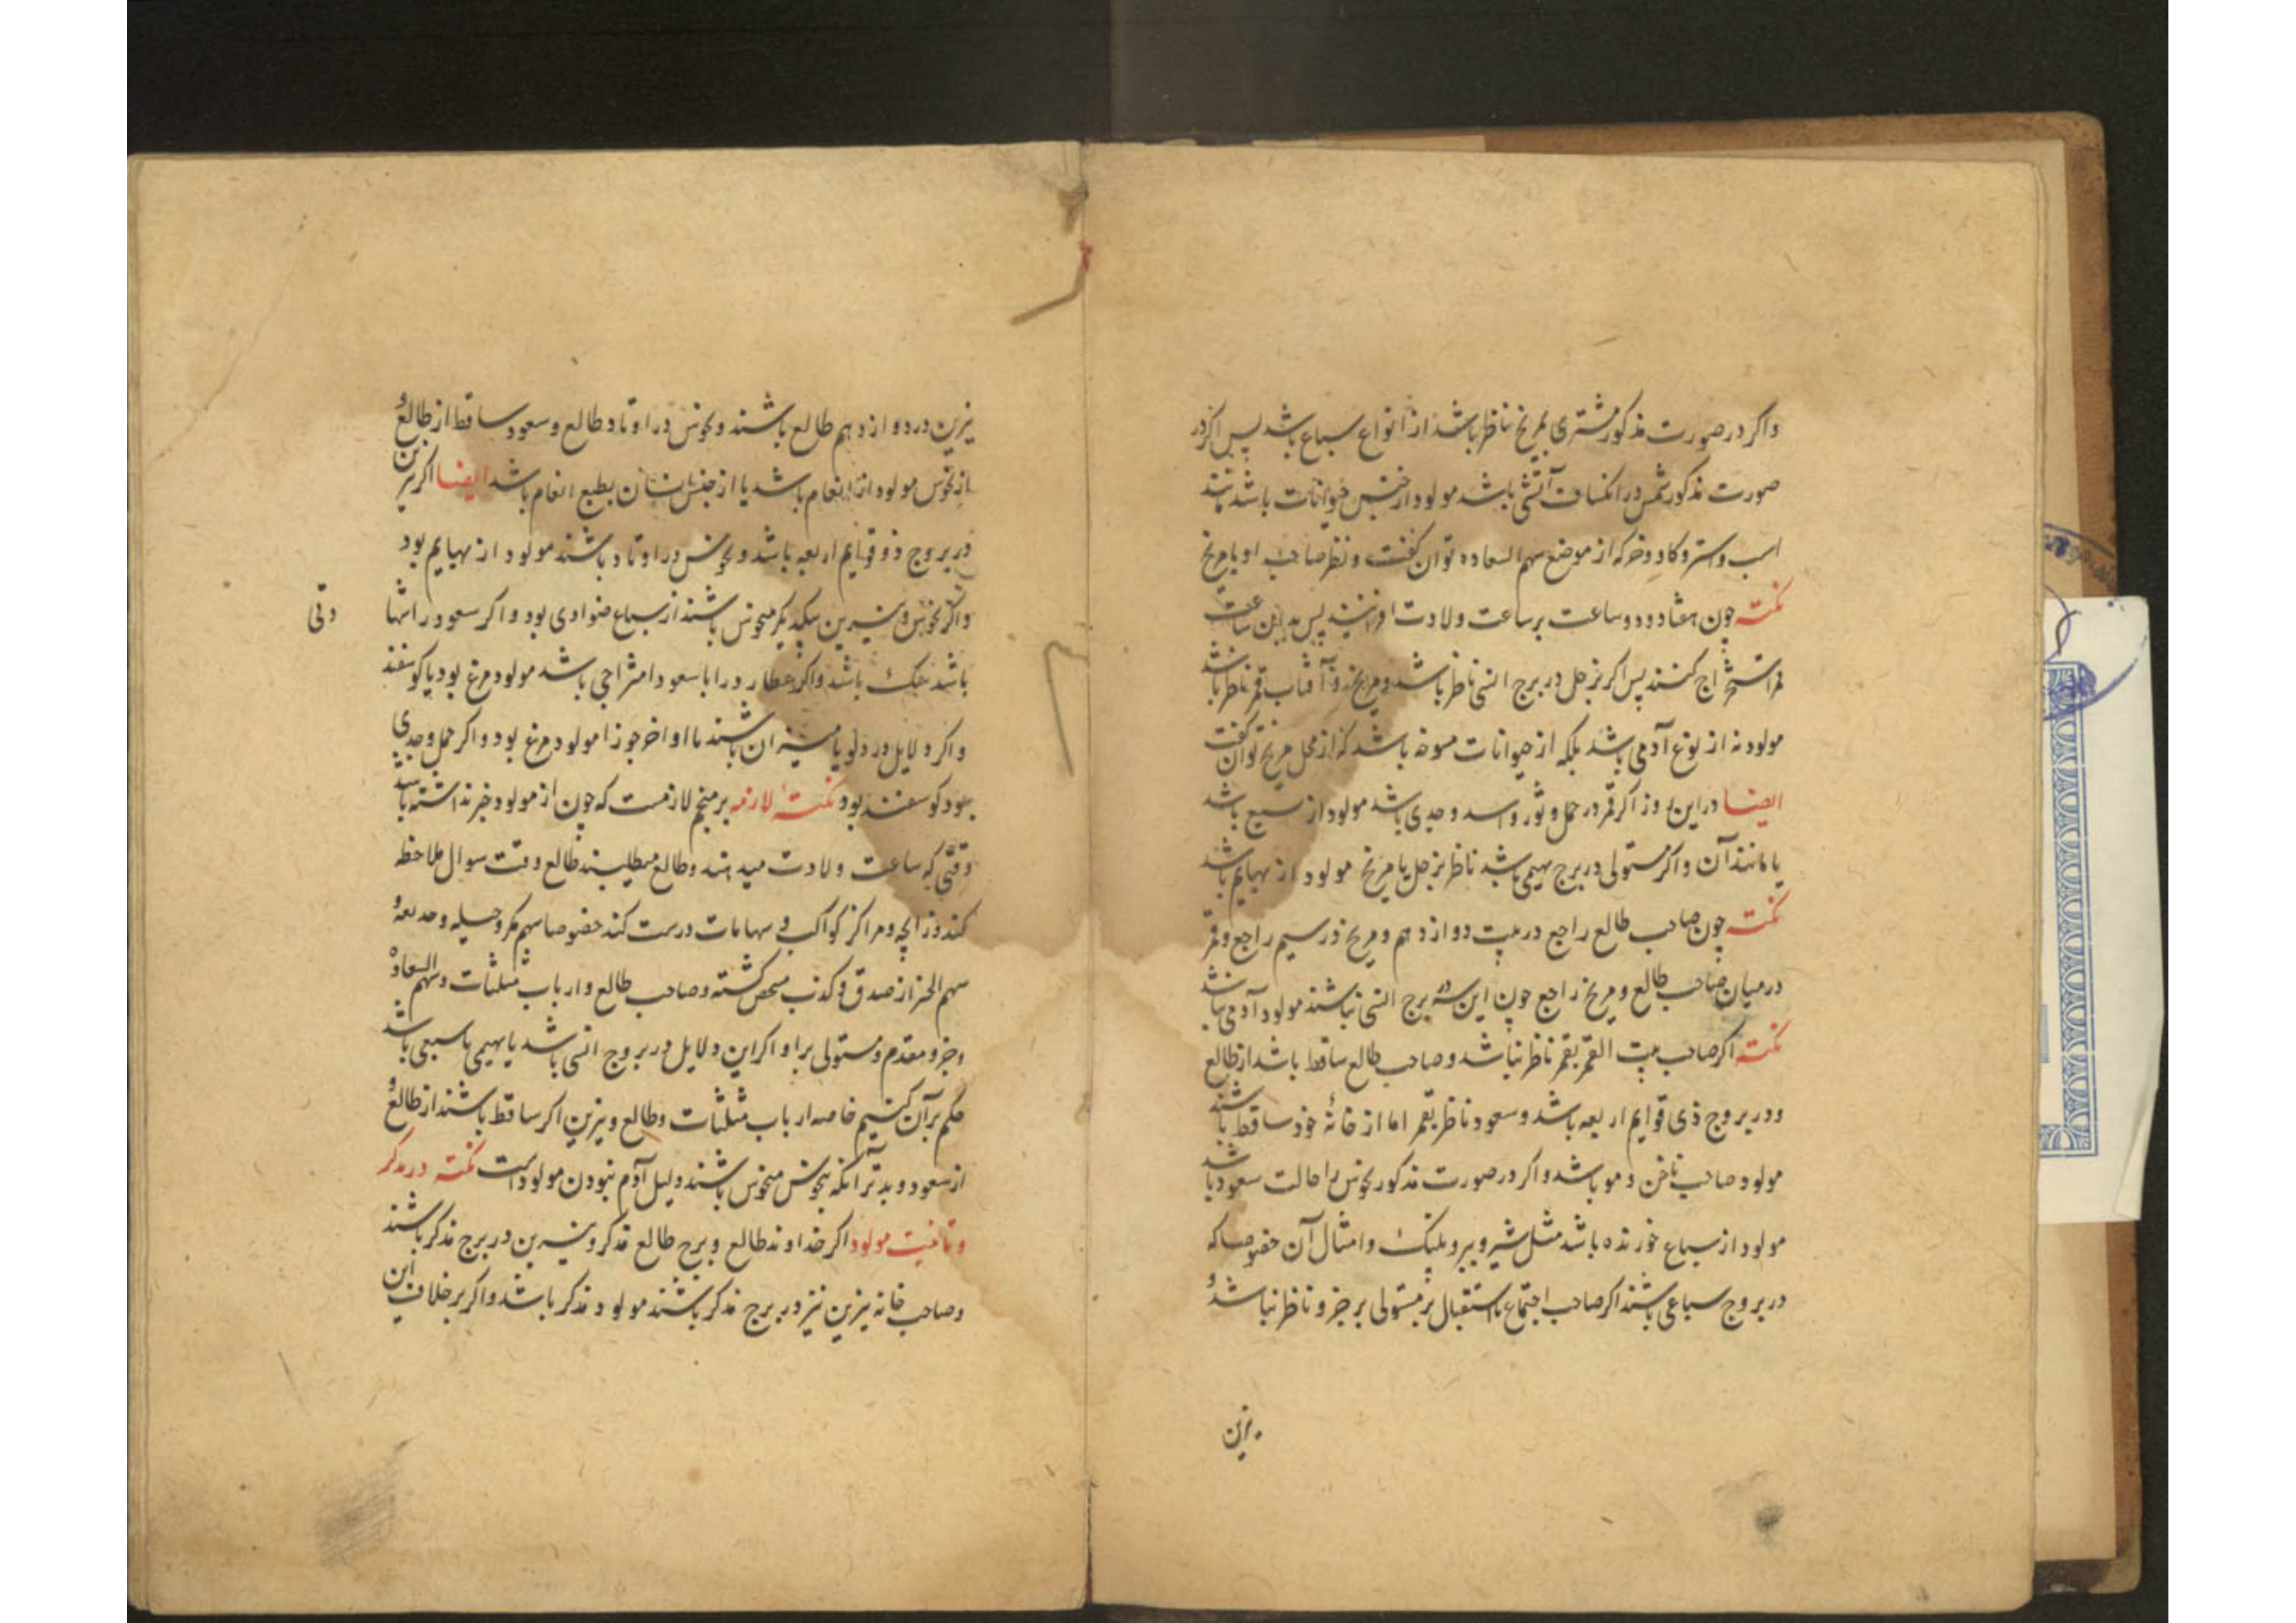 واکر در صورت مذکور مشتری بمریخ ناظر باشد از انواع سباع باشد پس اکر در
صورت مذکور شمس در آتشی باشد مولود از جنس حیوانات باشد مانند
اسب و استر و کاو و خر که از موضع سهم السعاده توان کفت و نظر صاحب او با مریخ
نکته چون هفتاد و دو ساعت بر ساعت ولادت افزایند پس بدین ساعت
استخراج کنند پس اکر زحل در برج انسی ناظر باشد و مریخ و آفتاب بقمر ناظر باشند
مولود نه از نوع آدمی باشد بلکه از حیوانات باشد که از محل مریخ توان کفت
ایضا در این روز اکر قمر در حمل و ثور و اسد و جدی باشد مولود از سبع باشد
یا مانند آن و اکر مستولی در برج بهیمی باشد ناظر بزحل یا مریخ مولود از بهایم باشد
نکته چون صاحب طالع راجع در بیت دوازدهم و مریخ در سیم راجع و قمر
در میان صاحب طالع و مریخ راجع چون این سه در برج انسی نباشند مولود آدمی نباشد
نکته اکر صاحب بیت القمر بقمر ناظر نباشد و صاحب طالع ساقط باشد از طالع
و در بروج ذی قوایم اربعه باشد و سعود ناظر بقمر اما از خانهٔ خود ساقط باشند
مولود صاحب ناخن و مو باشد و اکر در صورت مذکور نحوس را حالت سعود باشد
مولود از سباع خورنده باشد مثل شیر و ببر و پلنک و امثال آن خصوصا که
در بروج سباعی باشند اکر صاحب اجتماع یا استقبال بر مستولی بر جزو ناظر نباشد و
نیرین
نیرین در دوازدهم طالع باشند و نحوس در اوتاد طالع و سعود ساقط از طالع و
از نحوس مولود از انعام باشد یا از جنس انسان بطبع انعام باشد ایضا اکر نیرین
در بروج ذو قوایم اربعه باشد و نحوس در اوتاد باشند مولود از بهایم بود
و اکر نحوس و نیرین بیکدیکر منحوس باشند از سباع بود و اکر سعود را
باشد باشد و اکر عطارد را با سعود امتزاجی باشد مولود مرغ بود یا کوسفند
و اکر دلایل در دلو یا میزان باشند یا اواخر جوزا مولود مرغ بود و اکر حمل و جدی
بود کوسفند بود نکتهٔ لازمه بر منجم لازمست که چون از مولود خبر نداشته باشد
وقتی که ساعت ولادت میدهند و طالع میطلبند طالع وقت سوال ملاحظه
کند و زایچه و مراکز کواکب و سهامات درست کند خصوصا سهم مکر و حیله و خدیعه و
سهم الخبر از صدق و کذب مشخص کشته و صاحب طالع و ارباب مثلثات و سهم السعاده
و جزو مقدم و مستولی بر او اکر این دلایل در بروج انسی باشد یا بهیمی یا سبعی باشد
حکم بر آن کنیم خاصه ارباب مثلثات و طالع و نیرین اکر ساقط باشند از طالع و
از سعود و بدتر آنکه بنحوس منحوس باشند دلیل آدم نبودن مولود است نکته در تذکیر
و تانیث مولود اکر خداوند طالع و برج طالع مذکر و نیرین در برج مذکر باشند
و صاحب خانه نیرین نیز در برج مذکر باشند مولود مذکر باشد و اکر بر خلاف این